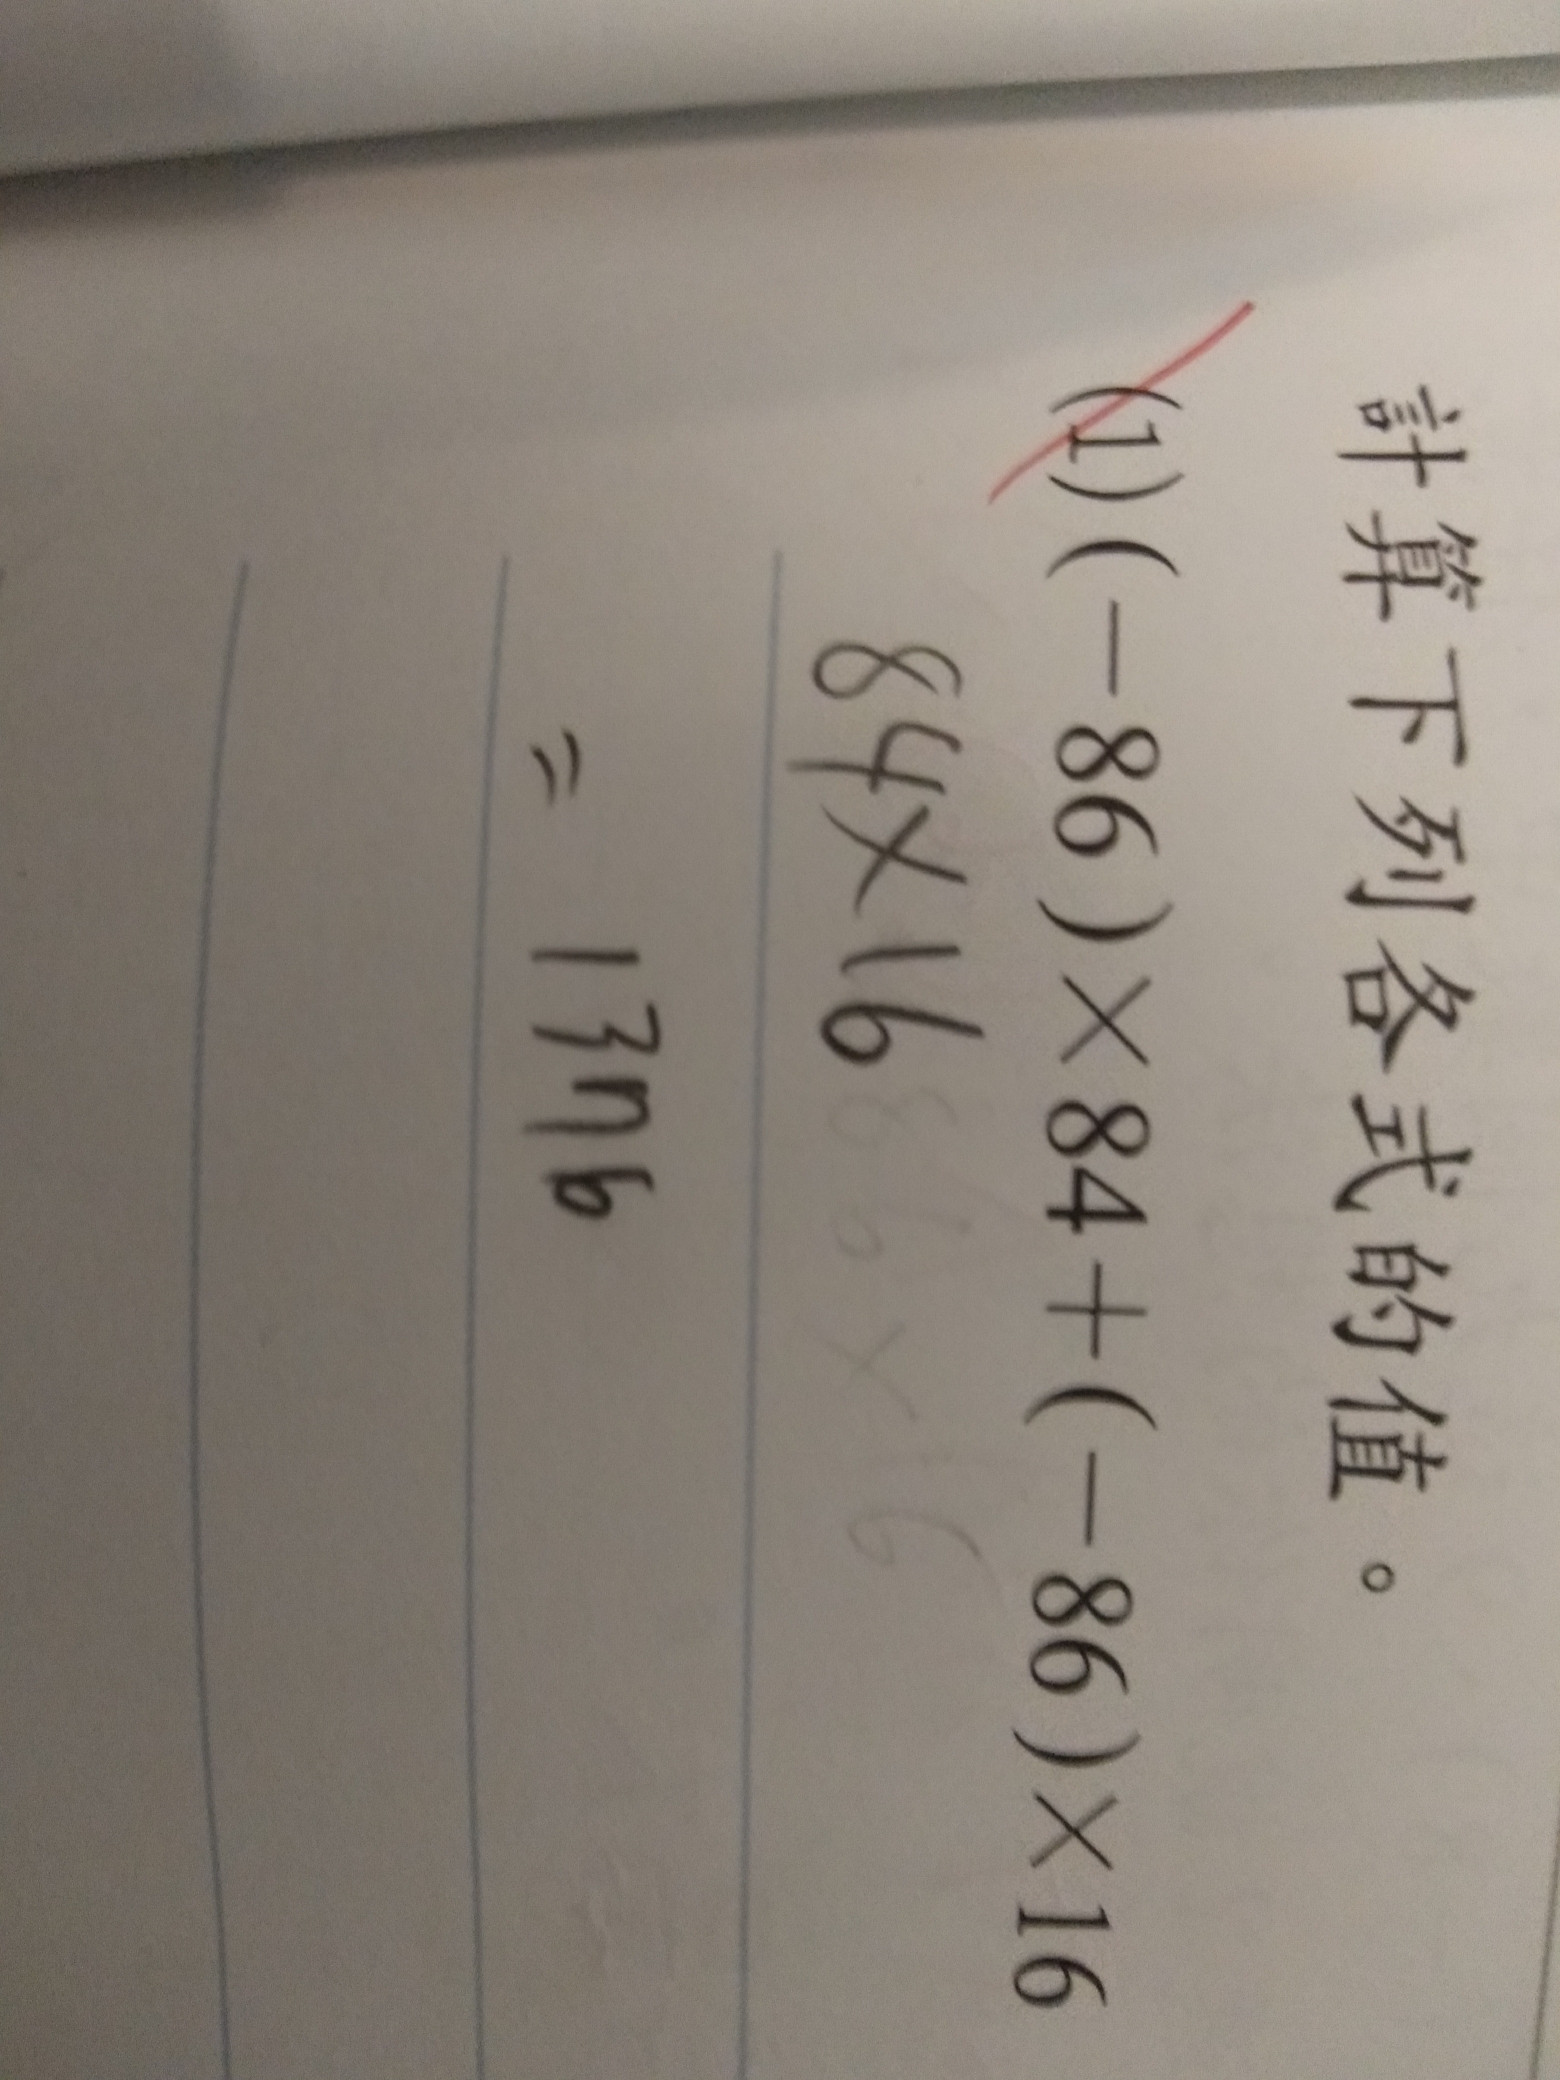 計算下列各式的值。
(1)(－86)×84＋(－86)×16
84×16 86×16
= 1346